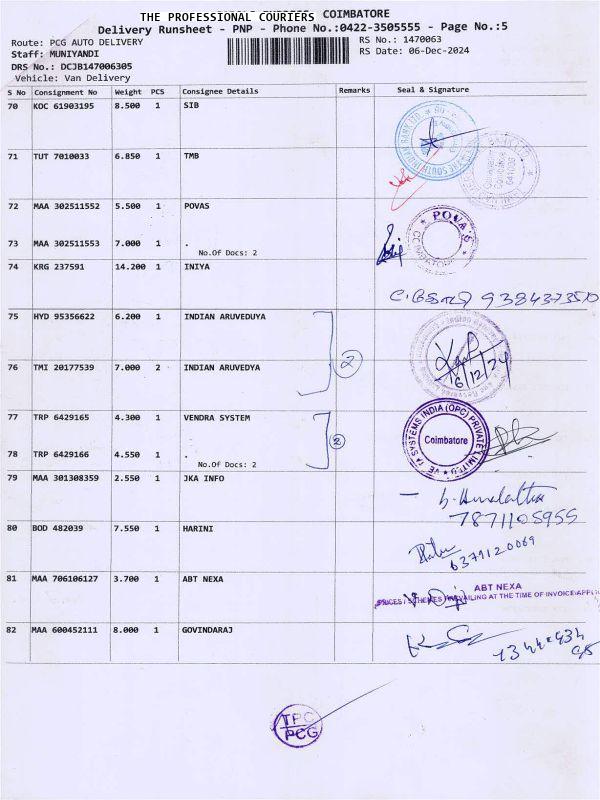 THE PROFESSIONAL COURIERS COIMBATORE
Delivery Runsheet - PNP - Phone No.:0422-3505555 - Page No.:5
Route: PCG AUTO DELIVERY
RS No.: 1470063
Staff: MUNIYANDI
RS Date: 06-Dec-2024
DRS No.: DCJB147006305
Vehicle: Van Delivery
S No Consignment No Weight PCS Consignee Details Remarks Seal & Signature
70 KOC 61903195 8.500 1 SIB
71 TUT 7010033 6.850 1 TMB
72 MAA 302511552 5.500 1 POVAS
POVA S
73 MAA 302511553 7.000 1 .
No.Of Docs: 2
74 KRG 237591 14.200 1 INIYA
75 HYD 95356622 6.200 1 INDIAN ARUVEDUYA
2
6/12/24
76 TMI 20177539 7.000 2 INDIAN ARUVEDYA
77 TRP 6429165 4.300 1 VENDRA SYSTEM
2
SYSTEMS INDIA (OPC) PRIVATE LIMITED
Coimbatore
78 TRP 6429166 4.550 1 .
No.Of Docs: 2
79 MAA 301308359 2.550 1 JKA INFO
7871105955
80 BOD 482039 7.550 1 HARINI
6379120069
81 MAA 706106127 3.700 1 ABT NEXA
ABT NEXA
82 MAA 600452111 8.000 1 GOVINDARAJ
TPC
PCG